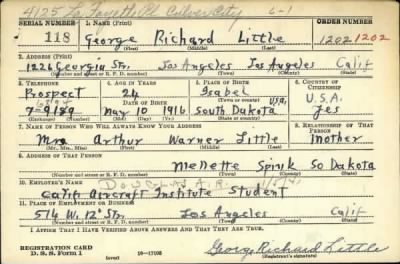 4125 La Fayette Pl Culver City 6-1
SERIAL NUMBER 1. NAME (Print) ORDER NUMBER
118 George Richard Little 1202 1202
(First) (Middle) (Last)
2. ADDRESS (Print)
1226 Georgia Str. Los Angeles Los Angeles Calif
(Number and street or R. F. D. number) (Town) (County) (State)
3. TELEPHONE 4. AGE IN YEARS 5. PLACE OF BIRTH 6. COUNTRY OF CITIZENSHIP
Prospect 24 Isabel U.S.A.
DATE OF BIRTH (Town or county) U.S.A.
7-9189 May 10 1916 South Dakota Yes
(Exchange) (Number) (Mo.) (Day) (Yr.) (State or country)
7. NAME OF PERSON WHO WILL ALWAYS KNOW YOUR ADDRESS 8. RELATIONSHIP OF THAT PERSON
Mrs Arthur Warner Little Mother
(Mr., Mrs., Miss) (First) (Middle) (Last)
9. ADDRESS OF THAT PERSON
Mellette Spink So Dakota
(Number and street or R. F. D. number) (Town) (County) (State)
10. EMPLOYER'S NAME Douglas
Calif Aircraft Institute Student
11. PLACE OF EMPLOYMENT OR BUSINESS
514 W. 12th Str. Los Angeles Calif
(Number and street or R. F. D. number) (Town) (County) (State)
I AFFIRM THAT I HAVE VERIFIED ABOVE ANSWERS AND THAT THEY ARE TRUE.
REGISTRATION CARD George Richard Little
D. S. S. Form 1 (over) 16—17105 (Registrant's signature)